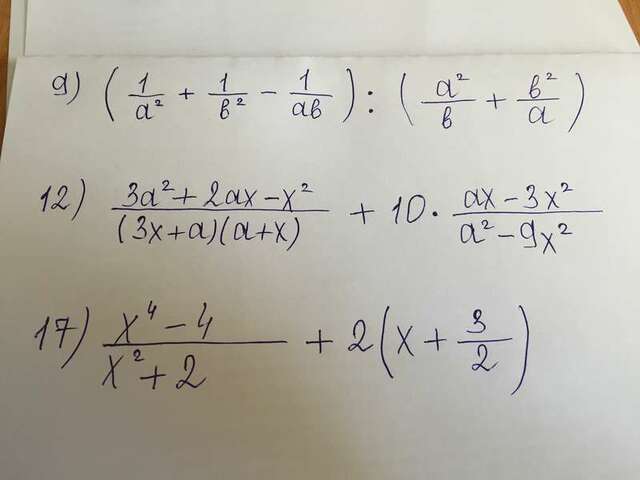 9) (1/a² + 1/b² − 1/ab) : (a²/b + b²/a)
12) (3a² + 2ax − x²)/((3x + a)(a + x)) + 10 · (ax − 3x²)/(a² − 9x²)
17) (x⁴ − 4)/(x² + 2) + 2(x + 3/2)